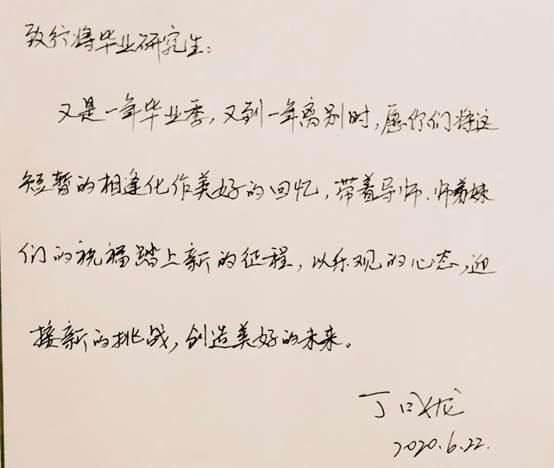 致行将毕业研究生：
又是一年毕业季，又到一年离别时，愿你们将这
短暂的相逢化作美好的回忆，带着导师、师弟妹
们的祝福踏上新的征程，以乐观的心态，迎
接新的挑战，创造美好的未来。
丁 龙
2020.6.22.